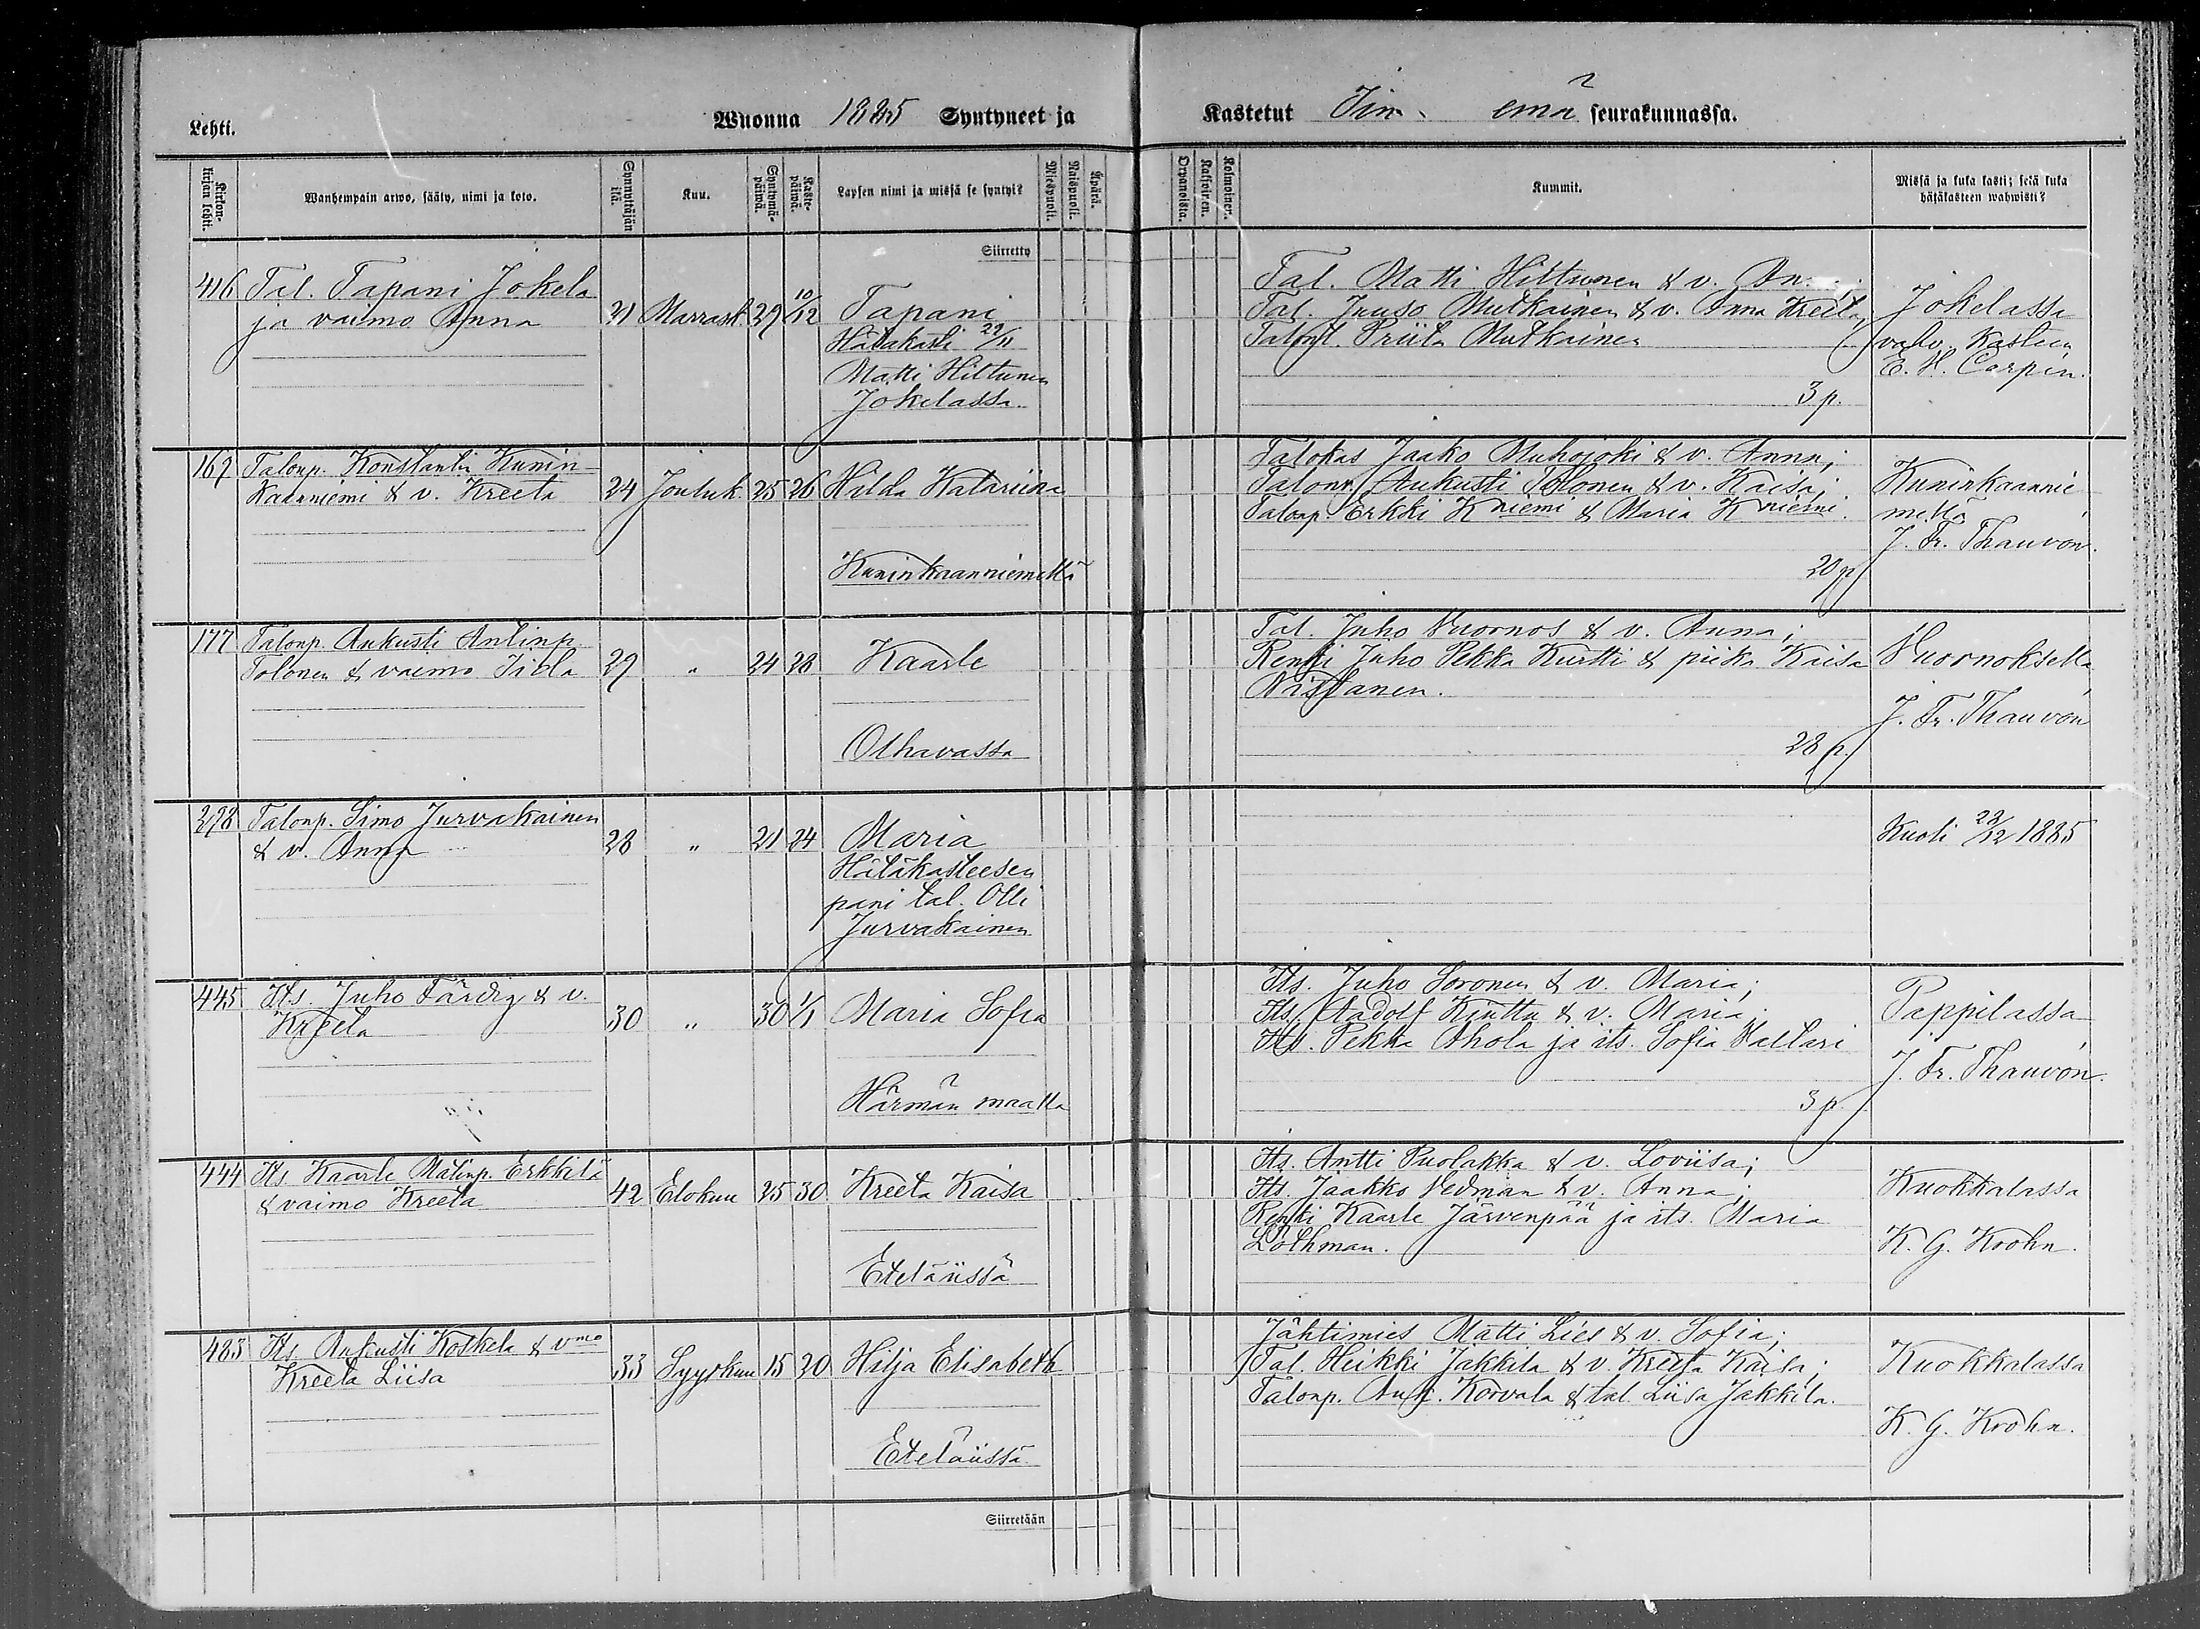 Lehti.
Wuonna 1885 Syntyneet ja
Kastetut Iin emä seurakunnassa.
Kirkon-kirjan lehti.
Wanhempain arwo, sääty, nimi ja koto.
Synnyttäjän ikä.
Kuu.
Syntymä-päiwä.
Kaste-päiwä.
Lapsen nimi ja missä se syntyi?
Miespuoli.
Naispuoli.
Äpärä.
Orpanoista.
Kaksoinen.
Kolmoinen.
Kummit.
Missä ja kuka kasti; sekä kuka hätäkasteen wahwisti?
Siirretty
416 Tal. Tapani Jokela
ja vaimo Anna 21 Marrask 29 10/12 Tapani
Hätäkasti 29/11
Matti Hiltunen
Jokelassa.
Tal. Matti Hiltunen & v. An
Tal. Juuso Mutkainen & v. Anna Kreeta,
Talont. Priita Mutkainen
3 p.
Jokelassa
vahv. kasteen
E. H. Carpén.
169 Talonp. Konstantin Kunin-
kaanniemi & v. Kreeta 24 Jouluk. 25 26 Hilda Katariina
Kuninkaanniemellä
Talokas Jaako Muhojoki & v. Anna;
Talonp. Aukusti Tolonen & v. Kaisa;
Talonp. Erkki K niemi & Maria K niemi.
20 p
Kuninkaannie
mellä
J. Fr. Thauvón.
177 Talonp. Aukusti Antinp.
Tolonen & vaimo Iida 29 " 24 28 Kaarle
Olhavassa
Tal. Juho Vuornos & v. Anna;
Renki Juho Pekka Kurtti & piika Kaisa
Nissanen.
28 p.
Vuornoksella
J. Fr. Thauvón
298 Talonp. Simo Jurvakainen
& v. Anna 28 " 21 24 Maria
Hätäkasteesen
pani tal. Olli
Jurvakainen
Kuoli 28/12 1885
445 Its. Juho Färdig & v.
Kreeta 30 " 30 1/1 Maria Sofia
Härmän maalla
Its. Juho Soronen & v. Maria;
Its. Aadolf Kinttu & v. Maria;
Its. Pekka Ahola ja its. Sofia Valtari
3 p.
Pappilassa
J. Fr. Thauvón.
444 Its Kaarle Matinp. Erkkilä
& vaimo Kreeta 42 Elokuu 25 30 Kreeta Kaisa
Eteläiissä
Its. Antti Puolakka & v. Loviisa;
Its. Jaakko Vedman & v. Anna;
Renki Kaarle Järvenpää ja its. Maria
Löthman.
Kuokkalassa
K. G. Krohn.
483 Its. Aukusti Koskela & vmo
Kreeta Liisa 33 Syyskuu 15 20 Hilja Elisabeth
Eteläiissä
Jähtimies Matti Lies & v. Sofia;
Tal. Heikki Jakkila & v. Kreeta Kaisa;
Talonp. Auk. Korvala & tal. Liisa Jakkila.
Kuokkalassa
K. G. Krohn.
Siirretään